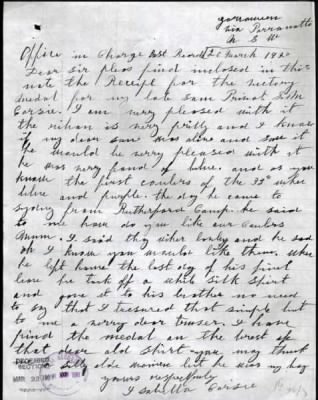 via Parramatta
N S W
March 192
Dear Sir pleas find inclosed in this
note the Receipt for the victory
medal for my late Son
I am very pleased with it
the riban is very pritty and I know
if my dear son was alive and
he would be very pleased with it
he was very fond of blue. and as you
know the first coulers of the 33 wher
blue and purple. the day he came to
sydney from Rutherford Camp. he said
to me how do you like our coulers
Mum. I said they wher lovly and he said
I know you would like them. when
he left home the last day of his final
leve he tuck off a white silk shirt
and gave it to his brother no need
to say that I treasured that simple but
to me a very dear I have
pind the medal on the brest of
that dear old shirt you may think
silly olde women but he was my boy
yours respectfuly
Isabella